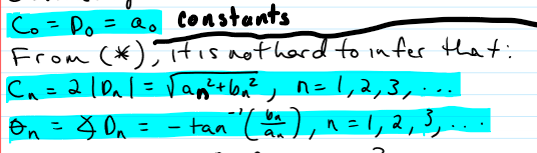 C₀ = D₀ = a₀ constants
From (*), it is not hard to infer that:
Cₙ = 2 |Dₙ| = √(aₙ² + bₙ²), n = 1, 2, 3, ...
θₙ = ∡ Dₙ = - tan⁻¹ (bₙ/aₙ), n = 1, 2, 3, ...